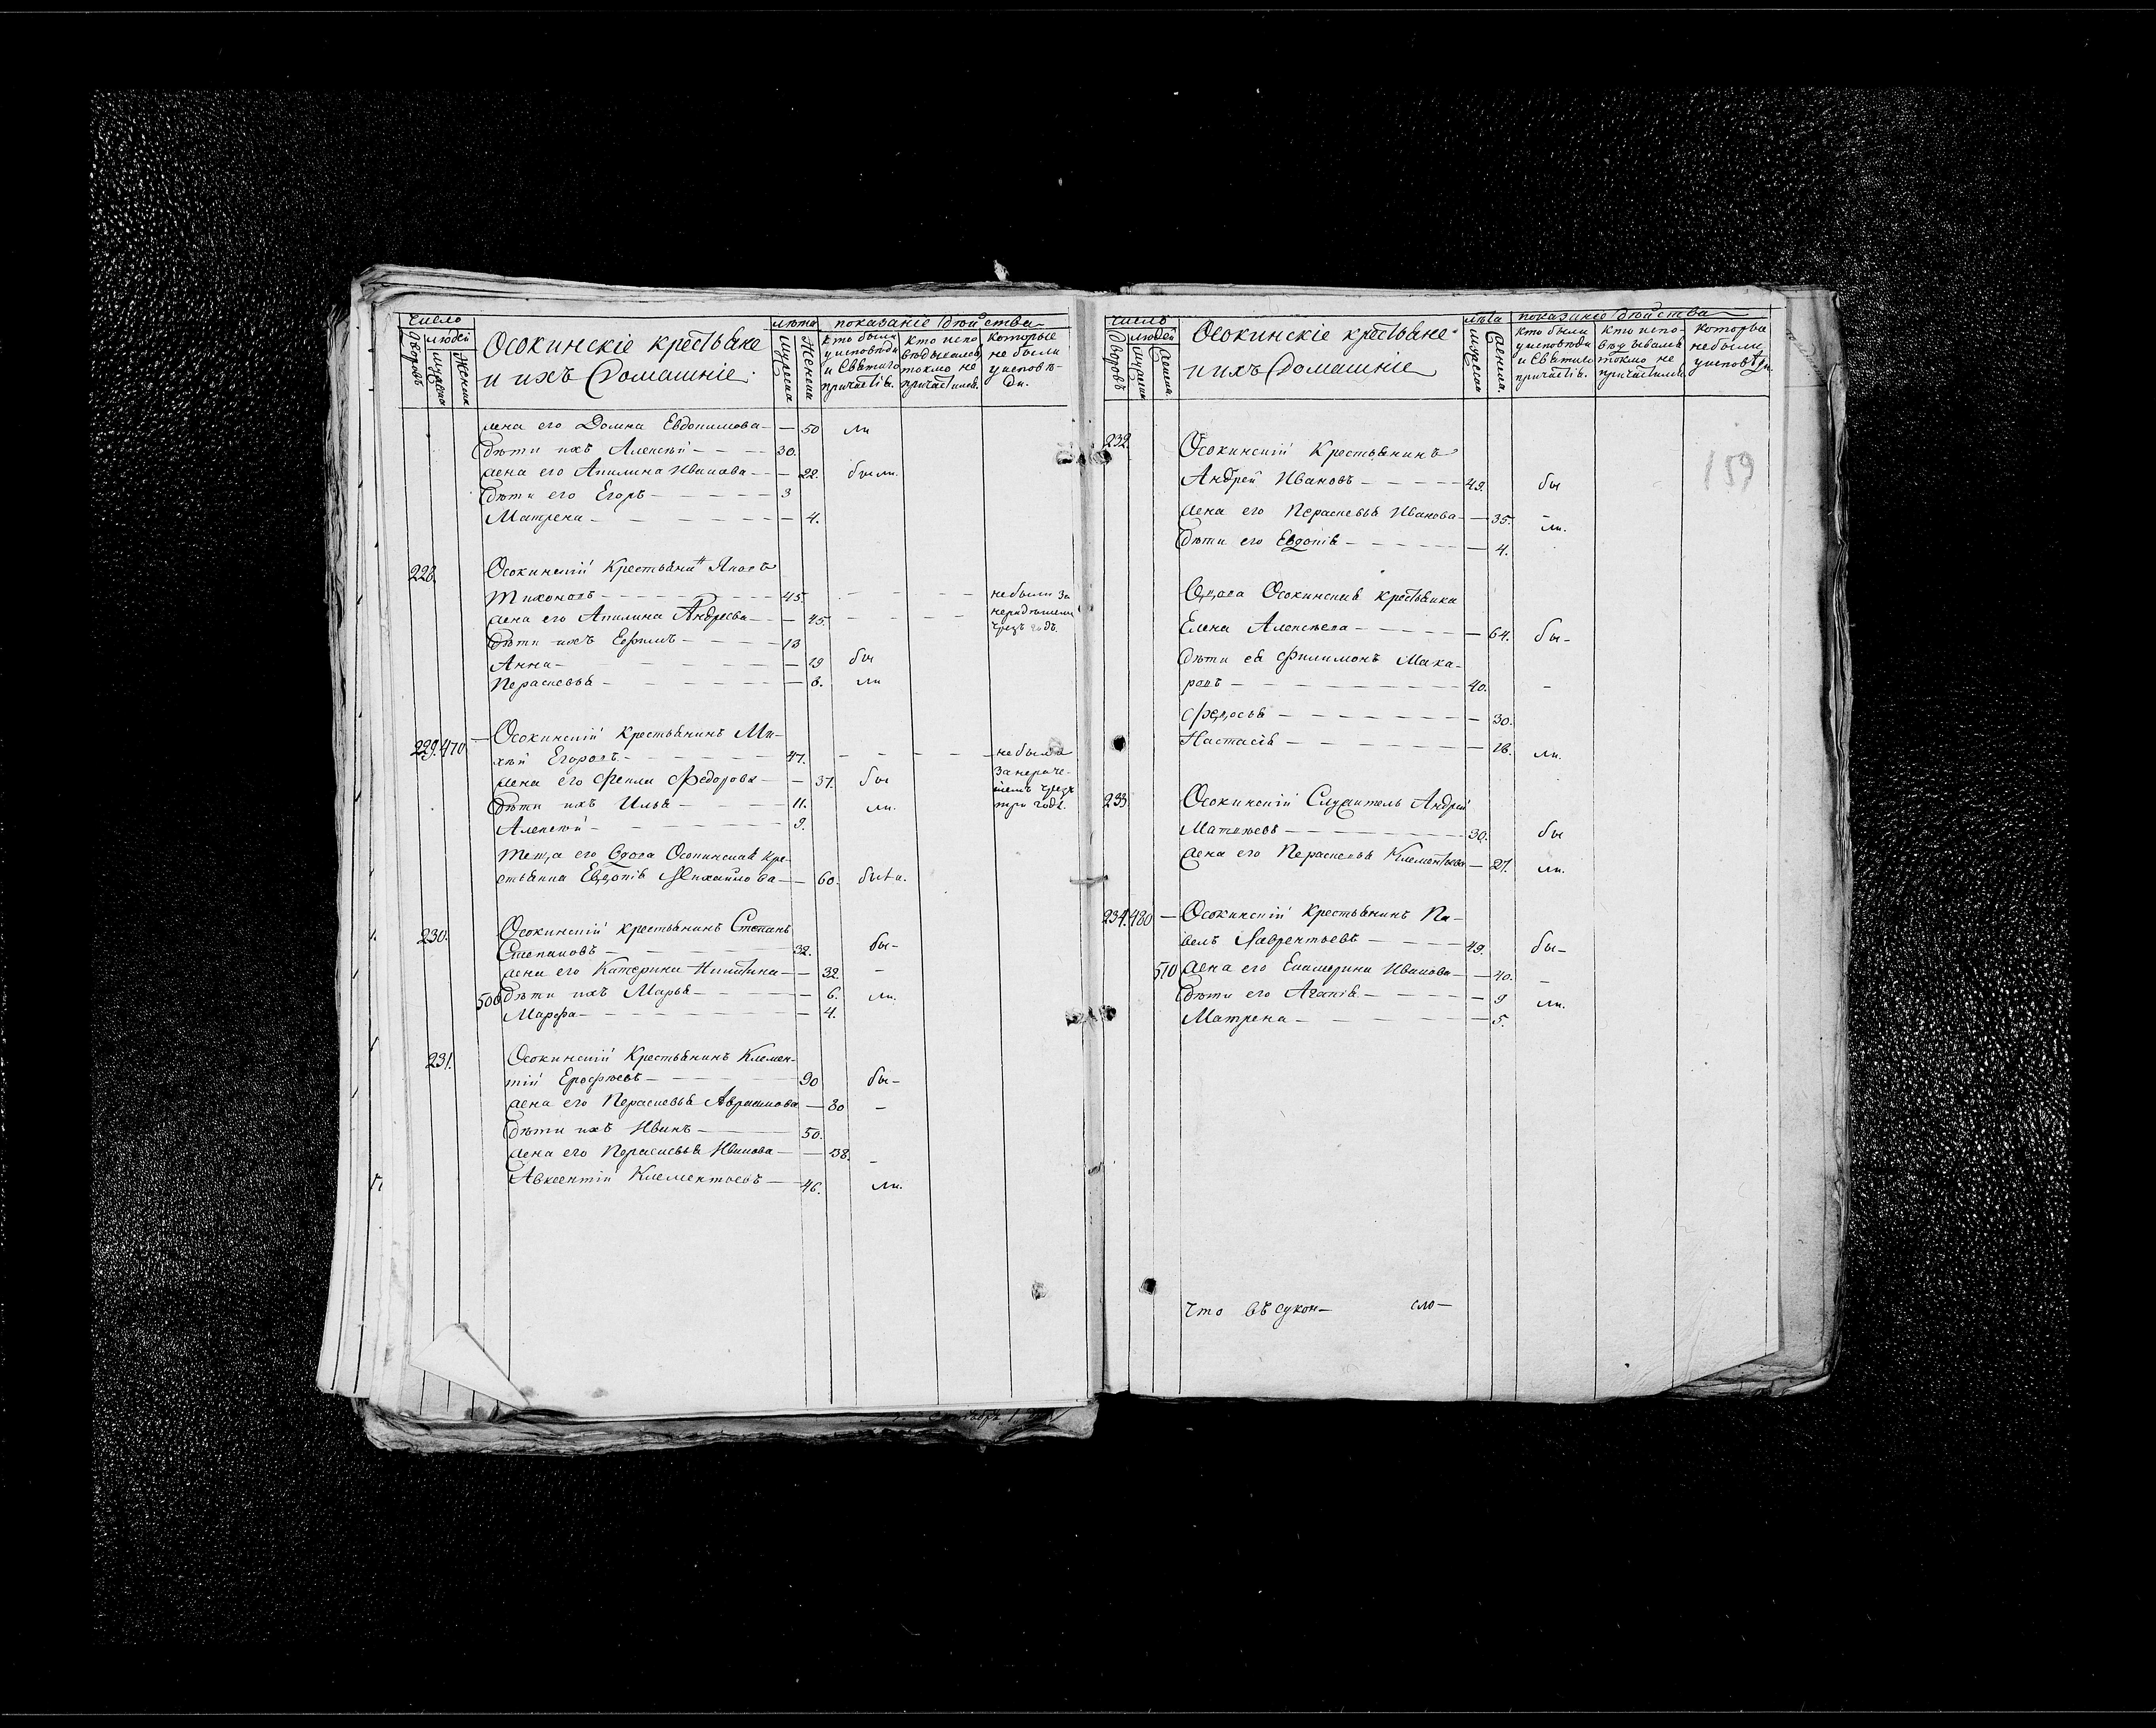 число
людей
дворовъ
мужеска
женска
Осокинскіе крестьяне
и ихъ домашніе.
лета
мужеска
женска
показаніе действа
кто были
у исповеди
и святаго
причастія.
кто испо-
ведывался,
токмо не
причастился.
которые
не были
у испове-
ди.
жена его Домна Евдокимова — 50 ли
дети ихъ Алексей — 30.
жена его Акилина Иванова — 22. были.
дети его Егоръ — 3
Матрена — 4.
228. Осокинскій крестьянинъ Яковъ
Тихоновъ — 45. не были за
жена его Акилина Андреева — 45. нерадениемъ
чрезъ годъ.
дети ихъ Ефимъ — 13
Анна — 19 бы
Перасковья — 8. ли
229. 470. Осокинскій крестьянинъ Ми-
хей Егоровъ — 47. не были
жена его Фекла Федорова — 37. бы
дети ихъ Илья — 11. ли. три года.
Алексей — 9.
теща его вдова Осокинская кре-
стьянка Евдокія Михайлова — 60. была.
230. Осокинскій крестьянинъ Степанъ
Степановъ — 32. бы-
жена его Катерина Никитина — 32. -
500 дети ихъ Марья — 6. ли.
Марфа — 4.
231. Осокинскій крестьянинъ Клемен-
тій Ерофеевъ — 90 бы-
жена его Перасковья Авраамова — 80 -
дети ихъ Иванъ — 50.
жена его Перасковья Иванова — 38. -
Авксентій Клементьевъ — 46. ли.
число
людей
дворовъ
мужеска
женска
Осокинскіе крестьяне
и ихъ домашніе
лета
мужеска
женска.
показаніе действа
кто были
у исповеди
и святаго
причастія.
кто испо-
ведывался
токмо не
причастился.
которыя
не были
у исповеди.
159
232. Осокинскій крестьянинъ
Андрей Ивановъ — 49. бы
жена его Перасковья Иванова — 35. - ли.
дети его Евдокія — 4.
Вдова Осокинская крестьянка
Елена Алексеева — 64. бы-
дети ея Филимонъ Мака-
ровъ — 40. -
Федосья — 30.
Настасія — 18. ли.
233 Осокинскій служитель Андрей
Матвеевъ — 30. бы
жена его Перасковья Клементьева — 27. ли.
234. 480 — Осокинскій крестьянинъ Па-
велъ Лаврентьевъ — 49. бы-
510 жена его Екатерина Иванова — 40. -
дети его Агапія — 9 ли.
Матрена — 5.
что въ сукон- сло-